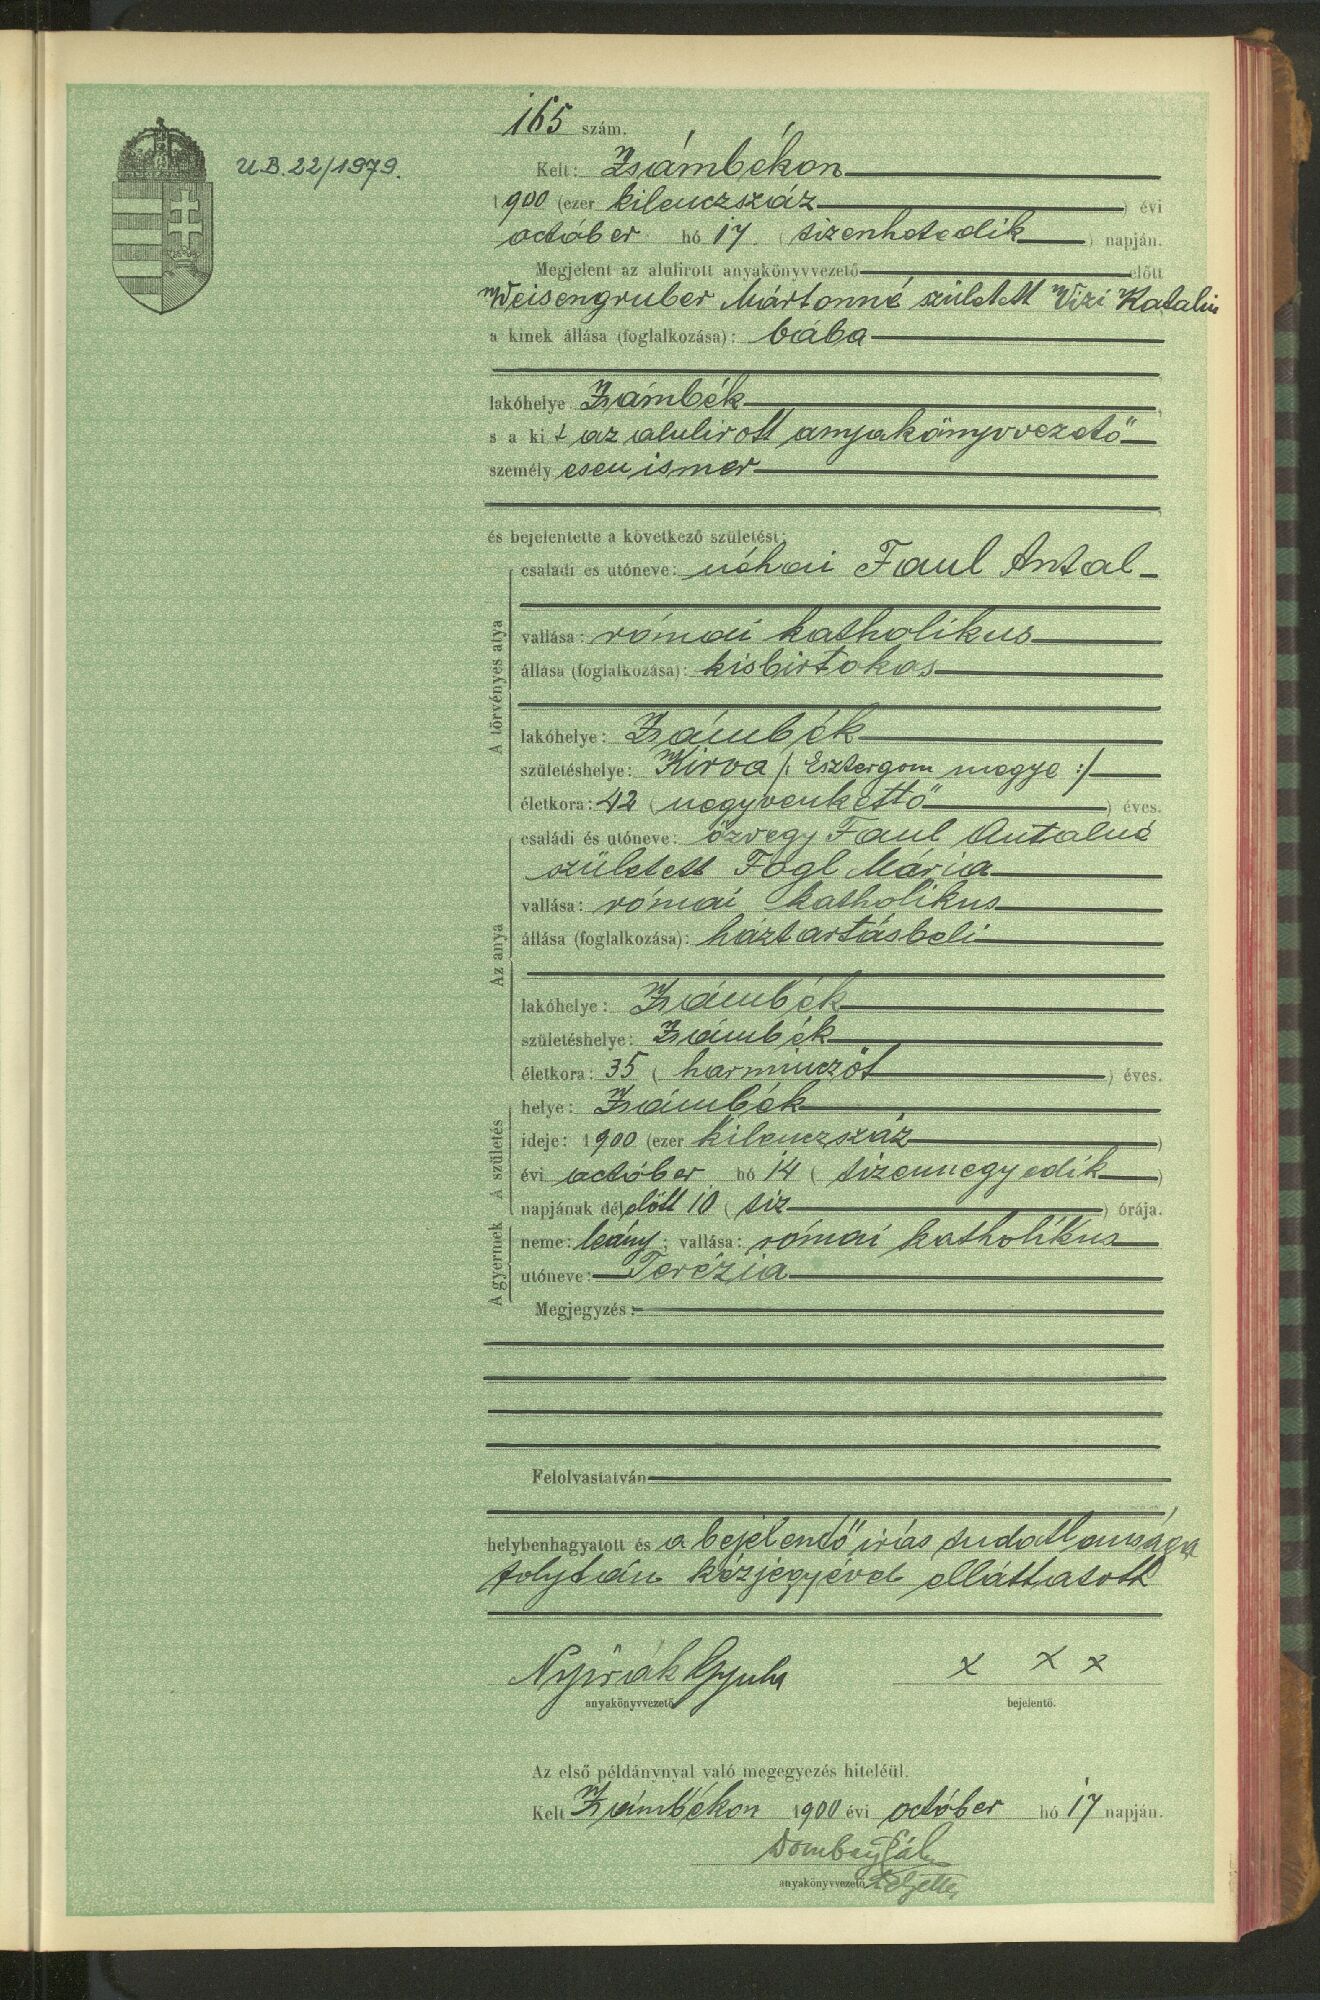 165 szám.
U.B. 22/1979.
Kelt: Zsámbékon
1900 (ezer kilenczszáz) évi
október hó 17. (tizenhetedik) napján.
Megjelent az alulirott anyakönyvvezető előtt
Weisengruber Mártonné született Vizi Katalin
a kinek állása (foglalkozása): bába
lakóhelye Zsámbék,
s a kit az alulirott anyakönyvvezető
személyesen ismer
és bejelentette a következő születést:
A törvényes atya
családi és utóneve: néhai Faul Antal
vallása: római katholikus
állása (foglalkozása): kisbirtokos
lakóhelye: Zsámbék
születéshelye: Kirva /: Esztergom megye :/
életkora: 42 (negyvenkettő) éves.
Az anya
családi és utóneve: özvegy Faul Antalné
született Fogl Mária
vallása: római katholikus
állása (foglalkozása): háztartásbeli
lakóhelye: Zsámbék
születéshelye: Zsámbék
életkora: 35 (harminczöt) éves.
A születés
helye: Zsámbék
ideje: 1900 (ezer kilenczszáz)
évi október hó 14 (tizennegyedik)
napjának délelőtt 10 (tiz) órája.
A gyermek
neme: leány; vallása: római katholikus
utóneve: Terézia
Megjegyzés:
Felolvastatván
helybenhagyatott és a bejelentő irás tudatlansága
folytán kézjegyével elláttatott
x x x
anyakönyvvezető
bejelentő.
Az első példánynyal való megegyezés hiteléül.
Kelt Zsámbékon 1900 évi október hó 17 napján.
anyakönyvvezető